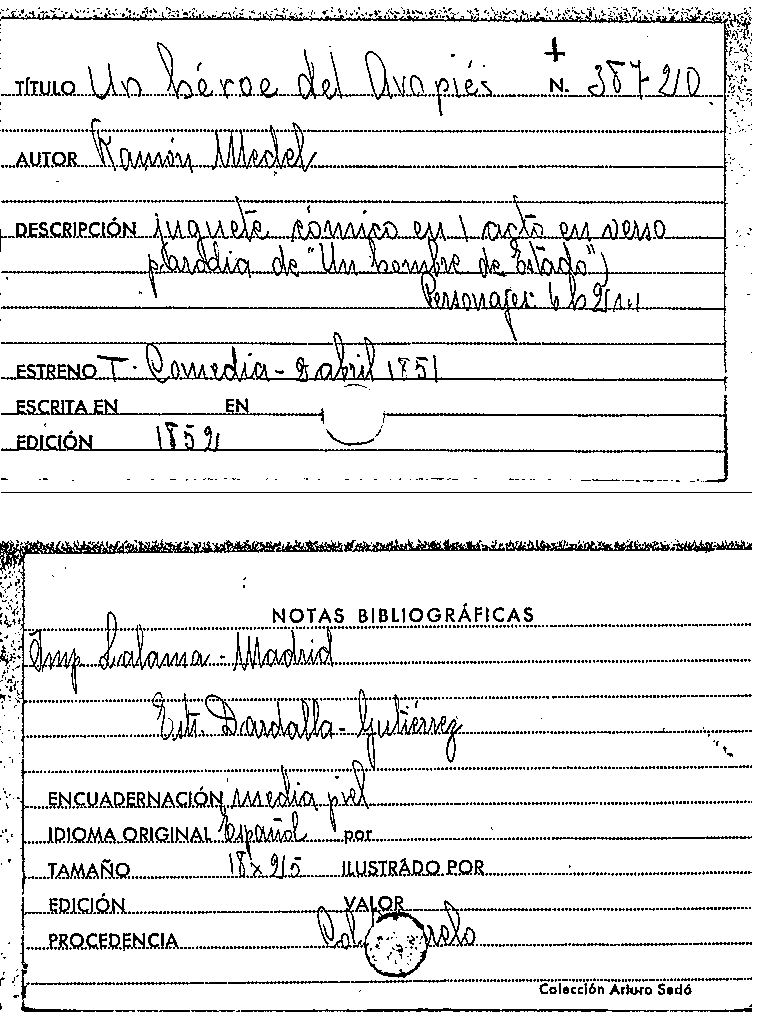 +
TÍTULO Un héroe del Avapiés N. 387210
AUTOR Ramón Medel
DESCRIPCIÓN juguete cómico en 1 acto en verso
parodia de "Un hombre de Estado")
Personajes: 6 h 2
ESTRENO T. Comedia - 8 abril 1851
ESCRITA EN EN
EDICIÓN 1852
NOTAS BIBLIOGRÁFICAS
Imp Lalama - Madrid
Estr. Dardalla - Gutiérrez
ENCUADERNACIÓN media piel
IDIOMA ORIGINAL Español por
TAMAÑO 18 x 25 ILUSTRADO POR
EDICIÓN VALOR
PROCEDENCIA
Colección Arturo Sedó